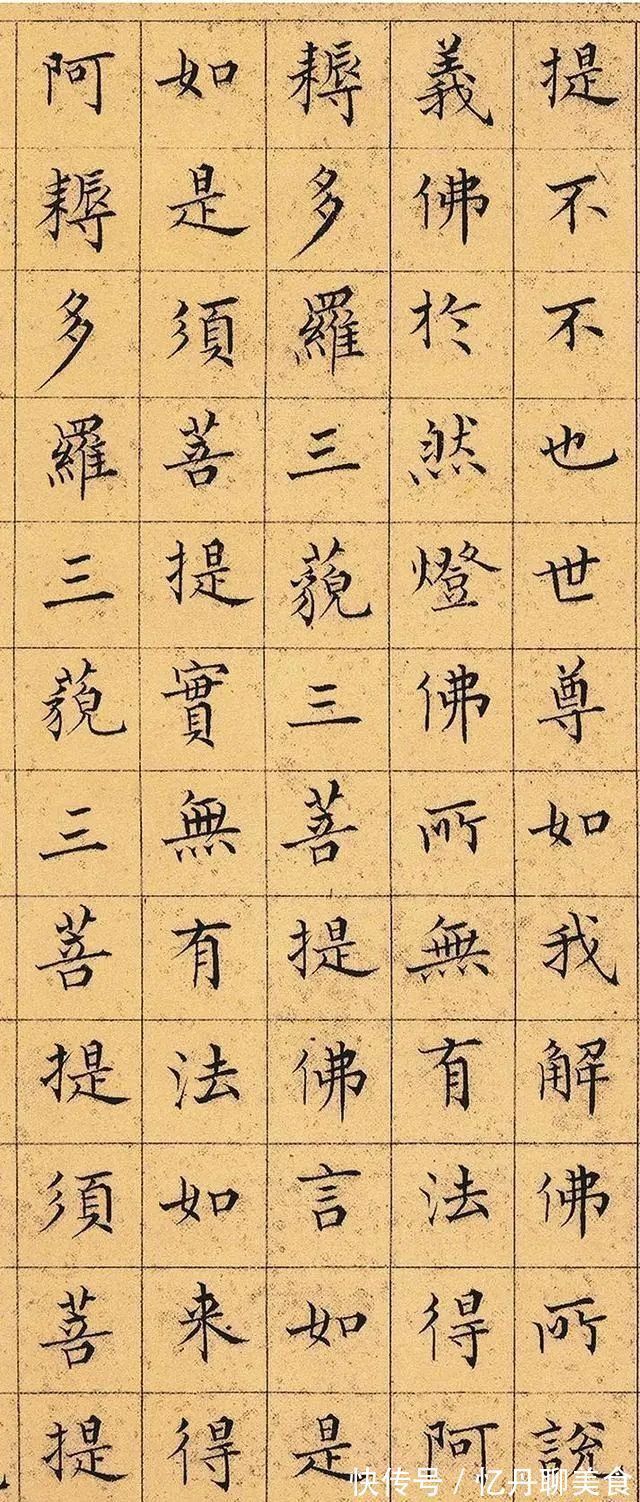 提不不也世尊如我解佛所說
義佛於然燈佛所無有法得阿
耨多羅三藐三菩提佛言如是
如是須菩提實無有法如來得
阿耨多羅三藐三菩提須菩提
快传号/忆丹聊美食